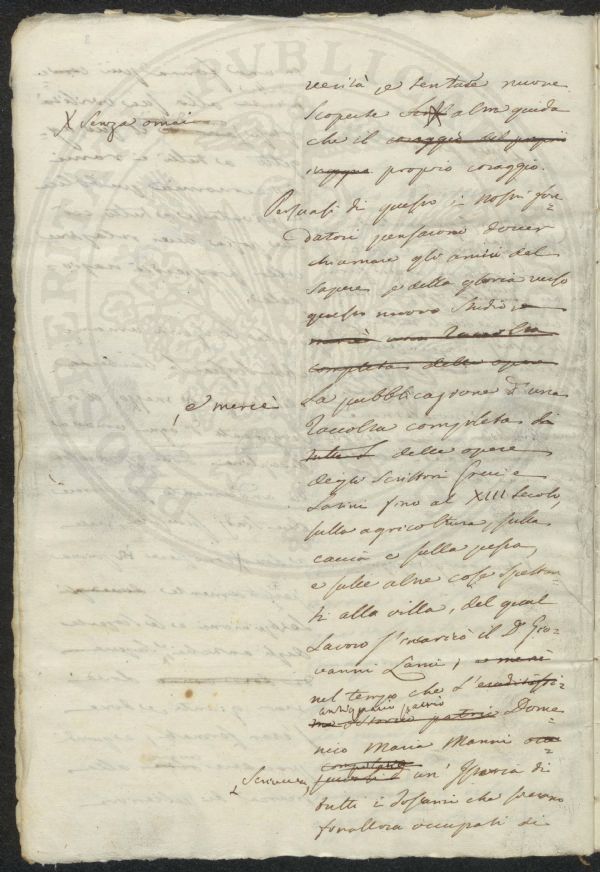 verità e tentare nuove
X Senza omei
Scoperte con altra guida
che il coraggio del proprio
proprio coraggio.
Persuasi di questo i nostri fon=
datori pensarono dover
chiamare gli amici del
sapere e della gloria verso
questo nuovo Studio e
mercè una Raccolta
completa delle opere
, e mercè
La pubblicazione d'una
raccolta completa di
tutte L delle opere
degli Scrittori Greci e
Latini fino al XIII Secolo,
sulla agricoltura, sulla
caccia e sulla pesca,
e sulle altre cose spettan=
ti alla villa, del qual
Lavoro s'incaricò il Dr Gio=
vanni Lami, e mentre
nel tempo che L'eruditissi=
antiquario patrio
mo Istorico patrio Dome=
nico Maria Manni
compilava
Scriveva, un' Istoria di
tutti i Toscani che s'erano
fin'allora occupati di